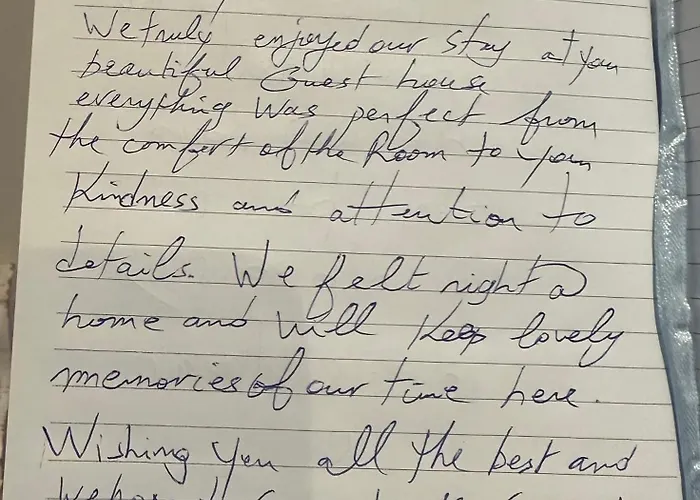 We truly enjoyed our stay at your
beautiful Guest house
everything was perfect from
the comfort of the Room to your
Kindness and attention to
details. We felt right @
home and will Keep lovely
memories of our time here.
Wishing you all the best and
We hope